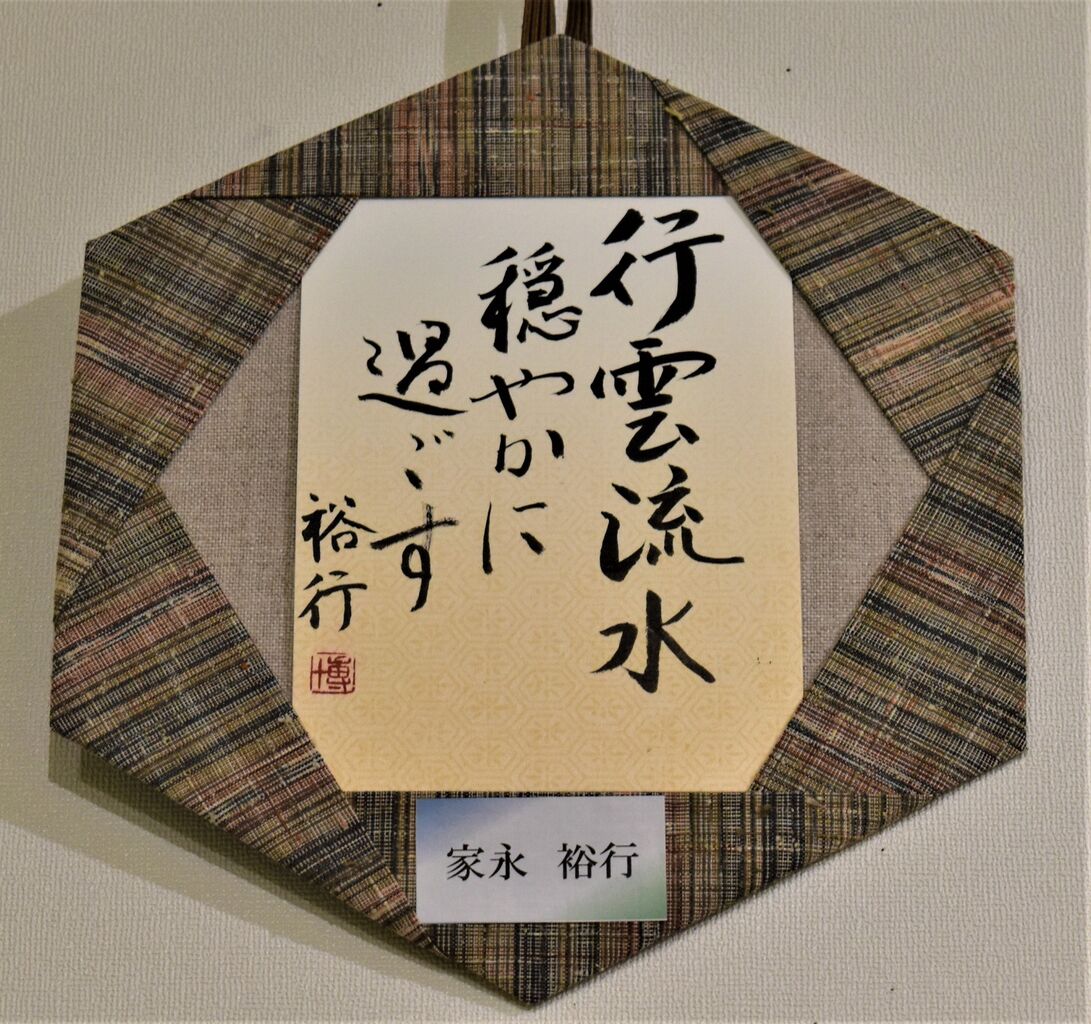 行雲流水
穏やかに
過ごす
裕行
博
家永 裕行